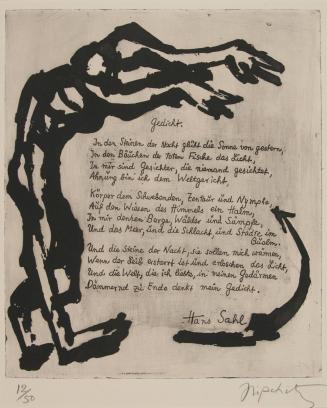 Gedicht.
In den Steinen der Nacht glüht die Sonne von gestern,
In den Bäuchen der toten Fische das Licht,
In mir sind Gesichter, die niemand gesichtet,
Ahnung bin ich dem Weltgericht,
Körper dem Schwebenden, Zentaur und Nymphe,
Auf den Wiesen des Himmels ein Halm,
In mir denken Berge, Wälder und Sümpfe,
Und das Meer, und die Schlacht und Städte im
Qualm.
Und die Steine der Nacht, sie sollen mich wärmen,
Wenn der Blitz erstarrt ist und erloschen das Licht,
Und die Welt, die ich liebte, in meinen Gedärmen
Dämmernd zu Ende denkt mein Gedicht.
Hans Sahl
12/50